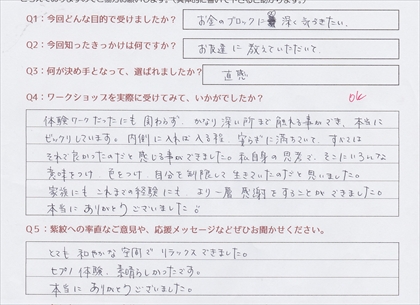 Q1：今回どんな目的で受けましたか？ お金のブロックに 深く気づきたい。
Q2：今回知ったきっかけは何ですか？ お友達に教えていただいて
Q3：何が決め手となって、選ばれましたか？ 直感
Q4：ワークショップを実際に受けてみて、いかがでしたか？ OK
体験ワークだったにも関わらず、かなり深い所まで触れる事ができ、本当に
ビックリしています。内側に入れば入る程、安らぎに満ちていて、すべては
それで良かったのだと感じる事ができました。私自身の思考で、そこにいろいろな
意味をつけ、色をつけ、自分を制限して生きていたのだと思いました。
家族にもこれまでの経験にも、より一層感謝をすることができました。
本当にありがとうございました。
Q5：紫紋への率直なご意見や、応援メッセージなどぜひお聞かせください。
とても和やかな空間でリラックスできました。
ヒプノ体験、素晴らしかったです。
本当にありがとうございました。